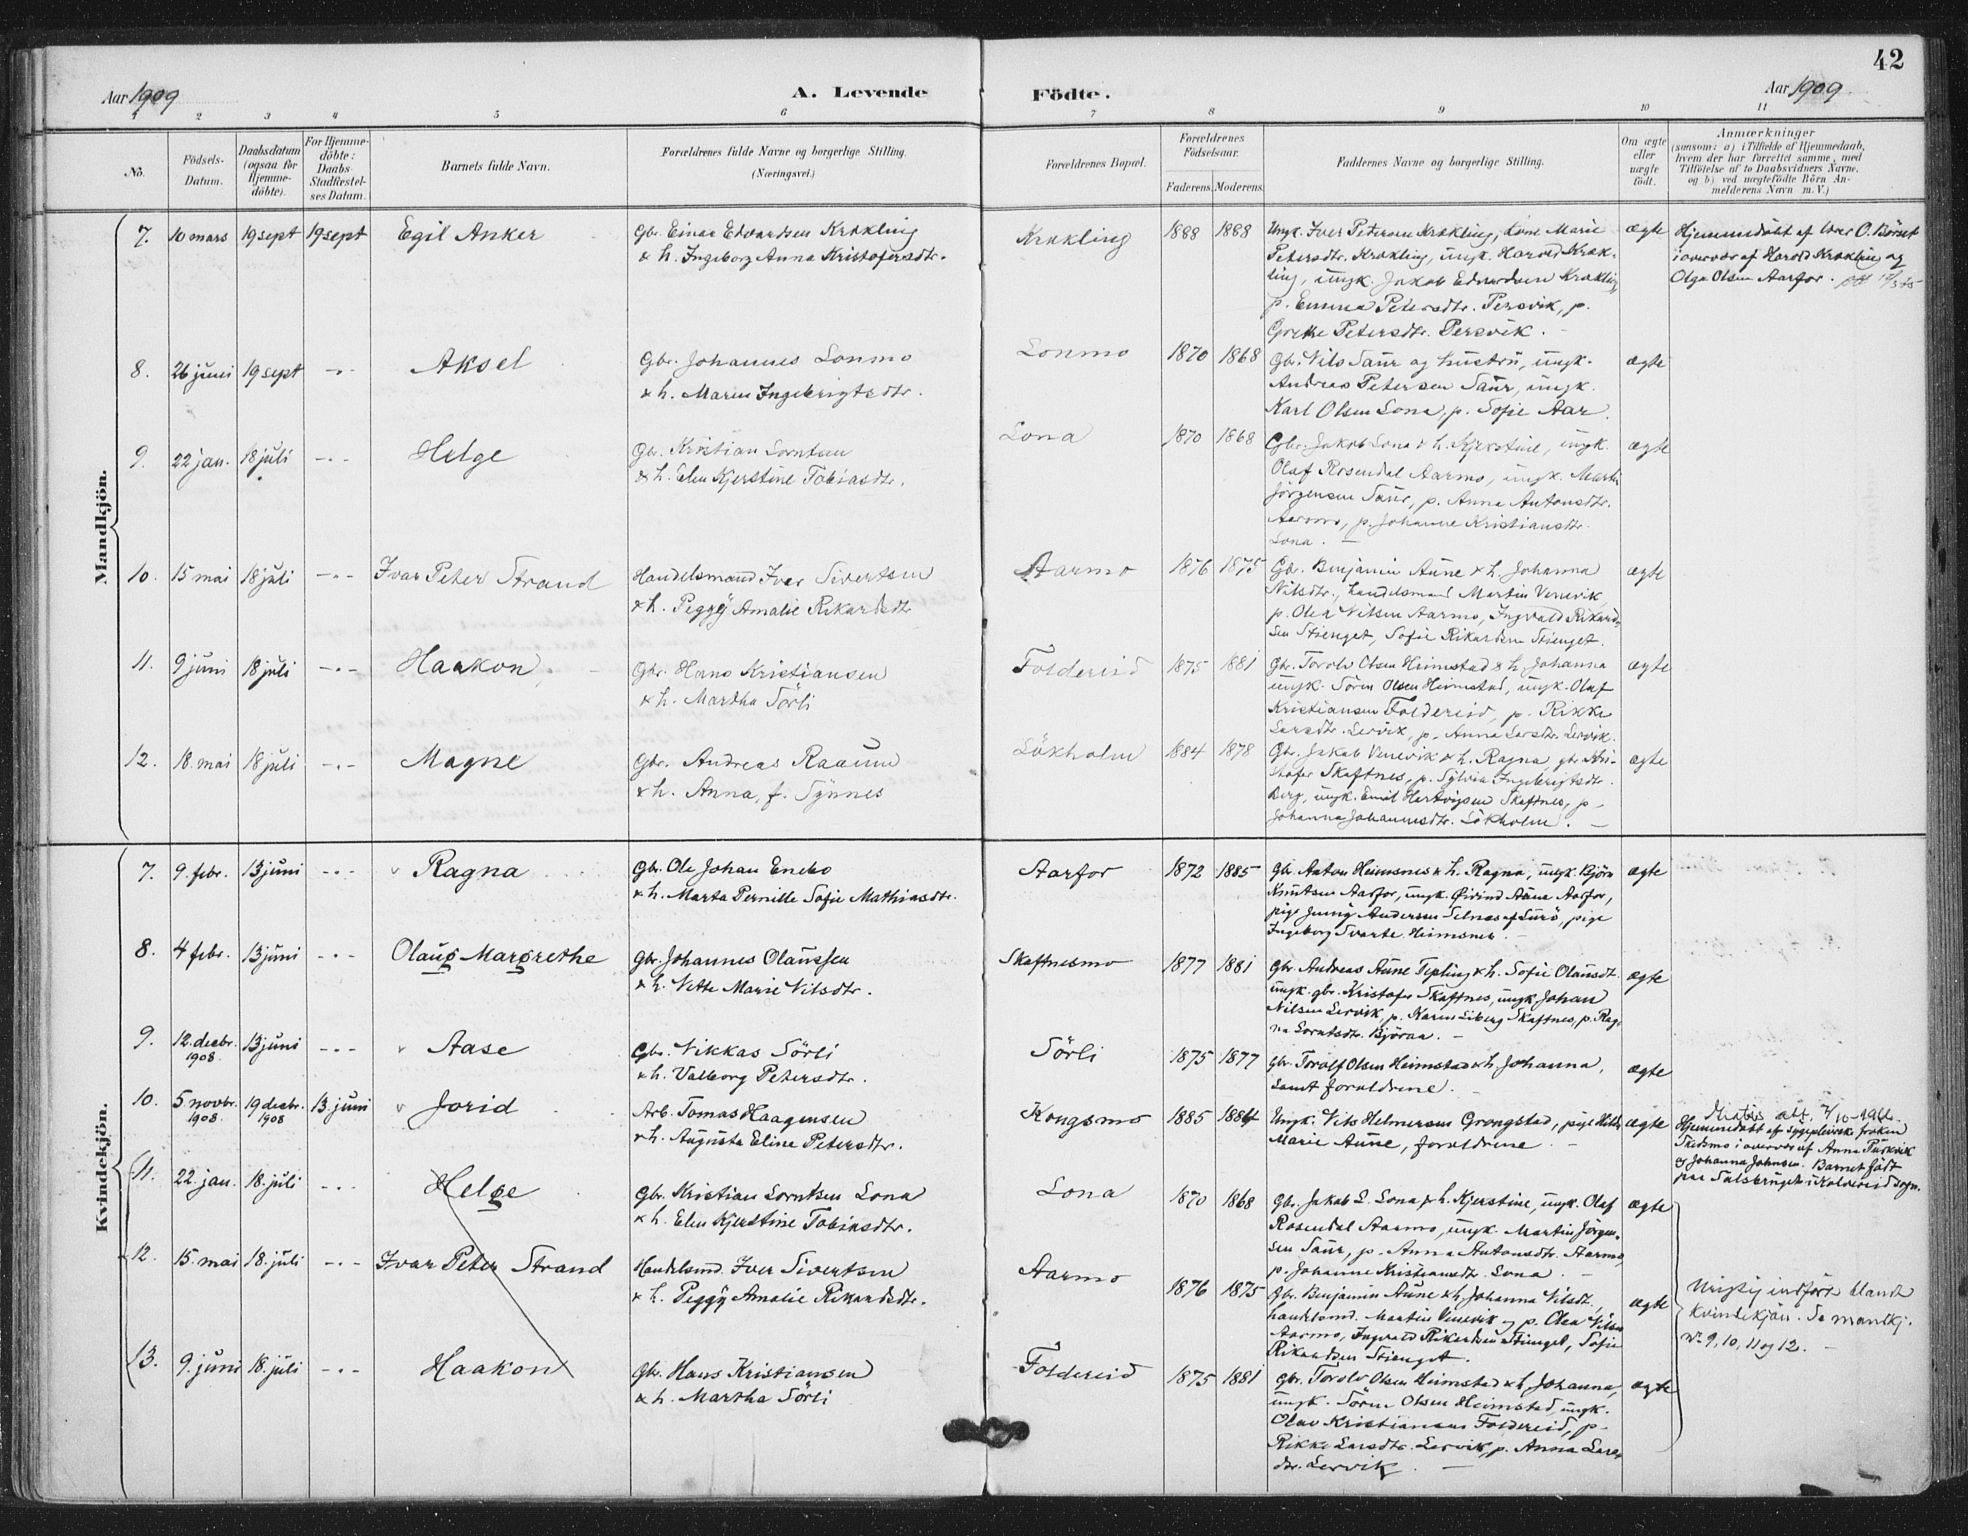 42
Aar 1909
A. Levende
Födte.
Aar 1909.
1 2 3 4 5 6 7 8 9 10 11
No.
Födsels-
Datum.
Daabsdatum
(ogsaa for
Hjemme-
döbte).
For Hjemme-
döbte:
Daabs-
Stadfæstel-
ses Datum.
Barnets fulde Navn.
Forældrenes fulde Navne og borgerlige Stilling.
(Næringsvei.)
Forældrenes Bopæl.
Forældrenes
Födselsaar.
Faderens. Moderens.
Faddernes Navne og borgerlige Stilling.
Om ægte
eller
uægte
født.
Anmærkninger
(saasom: a) i Tilfælde af Hjemmedaab,
hvem der har forrettet samme, med
Tilföielse af to Daabsvidners Navne,
og b) ved uægtefödte Börn An-
melderens Navn m. V.)
Mandkjön.
7. 10 mars 19 sept 19 sept Egil Anker
Gbr. Einar Edvardsen Krækling
& h. Ingeborg Anna Kristofersdtr.
Krækling 1888 1888
Ungk. Iver Petersen Krækling, Lone Marie
Petersdtr. Krækling, ungk. Harald Kræk-
ling, ungk. Jakob Edvardsen Krækling,
p. Emma Petersdtr. Persvik, p.
Grethe Petersdtr. Persvik.
ægte
Hjemmedöbt af Iver O. Börset
i overvær af Harald Krækling og
Olga Olsen Aarfor.
8. 26 juni 19 sept -"- Aksel
Gbr. Johannes Lonmo
& h. Maren Ingebrigtsdtr.
Lonmo 1870 1868
Gbr. Nils Saur og hustru, ungk.
Andreas Petersen Saur, ungk.
Karl Olsen Lona, p. Sofie Aar.
ægte
9. 22 jan. 18 juli -"- Helge
Gbr. Kristian Lorntsen
& h. Elen Kjerstine Tobiasdtr.
Lona 1870 1868
Gbr. Jakob Lona & h. Kjerstine, ungk.
Olaf Rosendal Aarmo, ungk. Martin
Jörgensen Saur, p. Anna Antonsdtr.
Aarmo, p. Johanne Kristiansdtr.
Lona.
ægte
10. 15 mai 18 juli -"- Ivar Peter Strand
Handelsmand Iver Sivertsen
& h. Peggy Amalie Rikardsdtr
Aarmo 1876 1875
Gbr. Benjamin Aune & h. Johanna
Nilsdtr., handelsmand Martin Venevik,
p. Olea Nilsen Aarmo, Ingvald Rikard-
sen Stienget, Sofie Rikardsen Stienget.
ægte
11. 9 juni 18 juli -"- Haakon
Gbr. Hans Kristiansen
& h. Martha Sörli
Foldereid 1875 1881
Gbr. Torolv Olsen Heimstad & h. Johanna
ungk. Sören Olsen Heimstad, ungk. Olaf
Kristiansen Foldereid, p. Rikke
Larsdtr. Lervik, p. Anna Larsdtr. Lervik.
ægte
12. 18. mai 18 juli -"- Magne
Gbr. Andreas Raaum
& h. Anna, f. Synnes
Lökholm 1884 1878
Gbr. Jakob Venevik & h. Ragna, gbr. Kri-
stofer Skaftnes, p. Sylvia Ingebrigtsdtr.
Berg, ungk. Emil Hartvigsen Skaftnes, p.
Johanna Johannesdtr. Lökholm.
ægte
Kvindekjön.
7. 9. febr. 13 juni -"- Ragna
Gbr. Ole Johan Enebo
& h. Marta Pernille Sofie Mathiasdtr.
Aarfor 1872 1885
Gbr. Anton Heimsnes & h. Ragna, ungk. Björn
Knutsen Aarfor, ungk. Øivind Aune Aarfor,
pige Jenny Andersen Selnæs af Surö, pige
Ingeborg Svarte. Heimsnes.
ægte
8. 4 febr. 13 juni -"- Olaug Margrethe
Gbr. Johannes Olaussen
& h. Nette Marie Nilsdtr.
Skaftnesmo 1877 1881
Gbr. Andreas Aune Tepling & h. Sofie Olausdtr.
ungk. gbr. Kristofer Skaftnes, ungk. Johan
Nilsen Lervik, p. Karen Liberg Skaftnes, p. Rag-
na Lorntsdtr. Björaa.
ægte
9. 12. decbr. 1908. 13 juni -"- Aase
Gbr. Nikkas Sörli
& h. Valborg Petersdtr.
Sörli 1875 1877
Gbr. Torolf Olsen Heimstad & h. Johanna,
samt forældrene.
ægte
10. 5 novbr. 1908. 19 decbr. 1908 13. juni Jorid
Arb. Tomas Haagensen
& h. Augusta Eline Petersdtr.
Kongsmo 1885 1884
Ungk. Nils Helmersen Grongstad, pige Hilda
Marie Aune, forældrene
ægte
Hjemmedöbt af Sygepleierske fröken
Skedsmo i overvær af Anna Purkvik
og Johanna Johnsen. Barnet födt
paa Salsbruket i Kolvereid sogn.
11. 22. jan. 18. juli -"- Helge
Gbr. Kristian Lorntsen Lona
& h. Elen Kjerstine Tobiasdtr.
Lona 1870 1868
Gbr. Jakob L. Lona & h. Kjerstine, ungk. Olaf
Rosendal Aarmo, ungk. Martin Jörgen-
sen Saur, p. Anna Antonsdtr. Aarmo,
p. Johanne Kristiansdtr. Lona.
ægte
12. 15. mai 18. juli -"- Ivar Peter Strand
Handelsmd. Iver Sivertsen
& h. Peggy Amalie Rikardsdtr.
Aarmo 1876 1875
Gbr. Benjamin Aune & h. Johanna Nilsdt.,
handelsmd. Martin Venevik, p. Olea Nilsen
Aarmo, Ingvald Rikardsen Stienget, Sofie
Rikardsen Stienget.
ægte
Urigtig indfört blandt
kvindekjön. Se mandkj.
№ 9, 10, 11 og 12.
13. 9. juni 18. juli -"- Haakon
Gbr. Hans Kristiansen
& h. Martha Sörli
Foldereid 1875 1881
Gbr. Torolv Olsen Heimstad & h. Johanna,
ungk. Sören Olsen Heimstad, ungk.
Olav Kristiansen Foldereid, p.
Rikke Larsdtr. Lervik, p. Anna Lars-
dtr. Lervik.
ægte